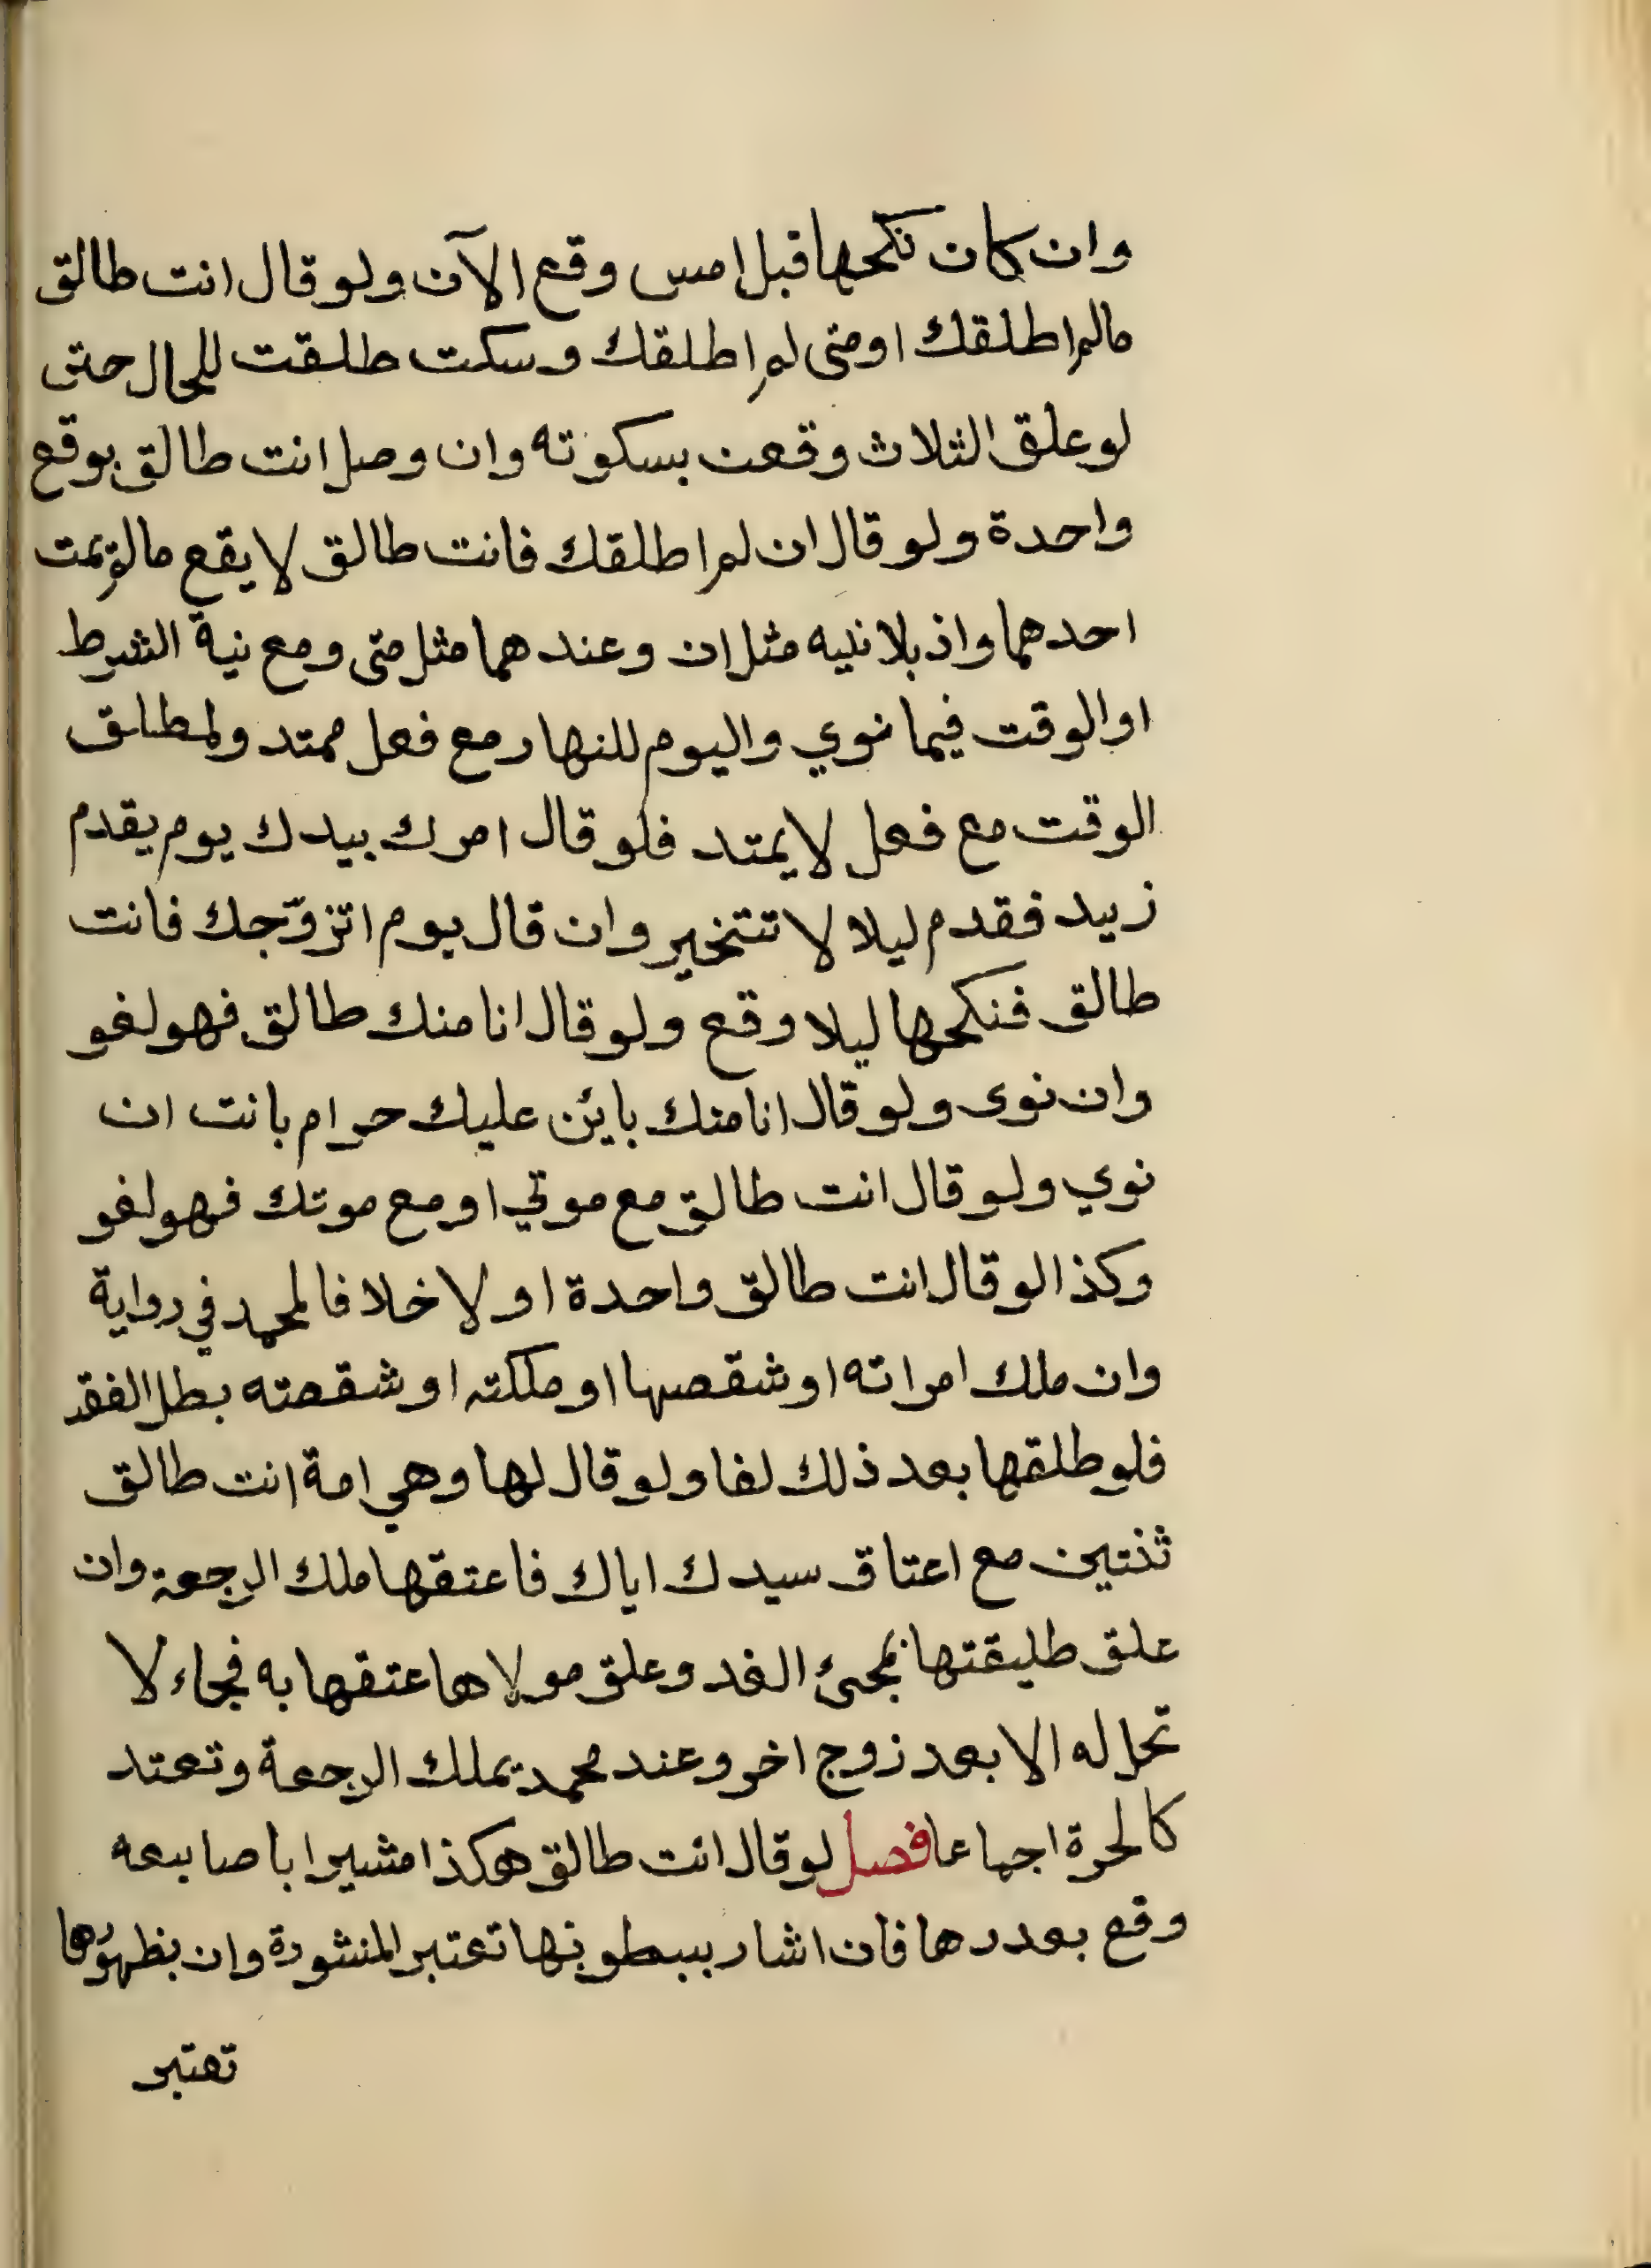 وان كان نكحها قبل امس وقع الآن ولو قال انت طالق
مالم اطلقك او متى لم اطلقك وسكت طلقت للحال حتى
لو علق الثلاث وقعت بسكوته وان وصل انت طالق بوقع
واحدة ولو قال ان لم اطلقك فانت طالق لا يقع مالم يمت
احدهما واذ بلا نيه مثل ان وعندهما مثل متى ومع نية الشرط
او الوقت فيما نوي واليوم للنهار مع فعل ممتد ولمطلق
الوقت مع فعل لا يمتد فلو قال امرك بيدك يوم يقدم
زيد فقدم ليلا لا تتخير وان قال يوم اتزوّجك فانت
طالق فنكحها ليلا وقع ولو قال انا منك طالق فهو لغو
وان نوى ولو قال انا منك بائن عليك حرام بانت ان
نوي ولو قال انت طالق مع موتي او مع موتك فهو لغو
وكذا لو قال انت طالق واحدة او لا خلافا لمحمد في رواية
وان ملك امراته او شقصها او ملكته او شقصته بطل الفقد
فلو طلقها بعد ذلك لغا ولو قال لها وهي امة انت طالق
ثنتين مع اعتاق سيدك اياك فاعتقها ملك الرجعة وان
علق طليقتها بمجئ الغد وعلق مولاها عتقها به فجاء لا
تحل له الا بعد زوج اخر وعند محمد يملك الرجعة وتعتد
كالحرة اجماعا فصل لو قال انت طالق هكذا مشيرا باصابعه
وقع بعددها فان اشار ببطونها تعتبر المنشورة وان بظهورها
تعتبر